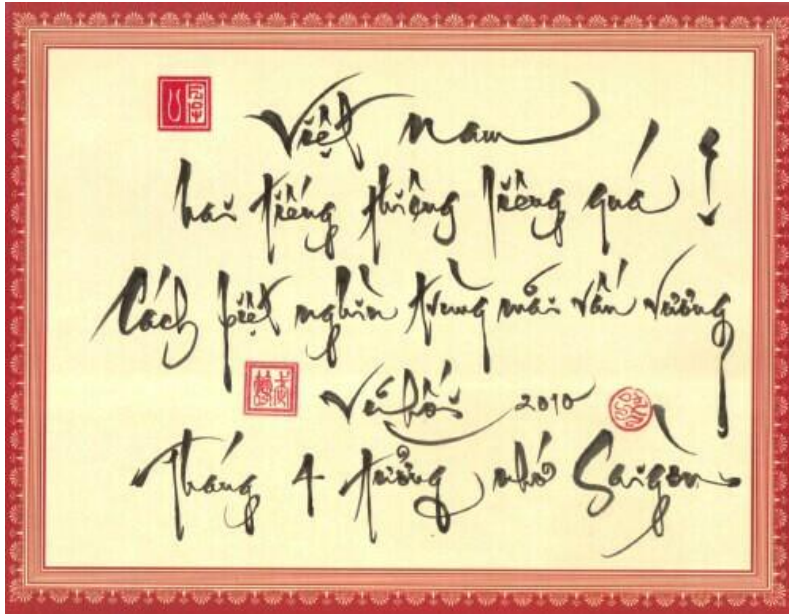 Việt Nam
hai tiếng thiêng liêng quá!
Cách biệt nghìn trùng mãi vấn vương
Vũ Hối 2010
Tháng 4 tưởng nhớ Saigon